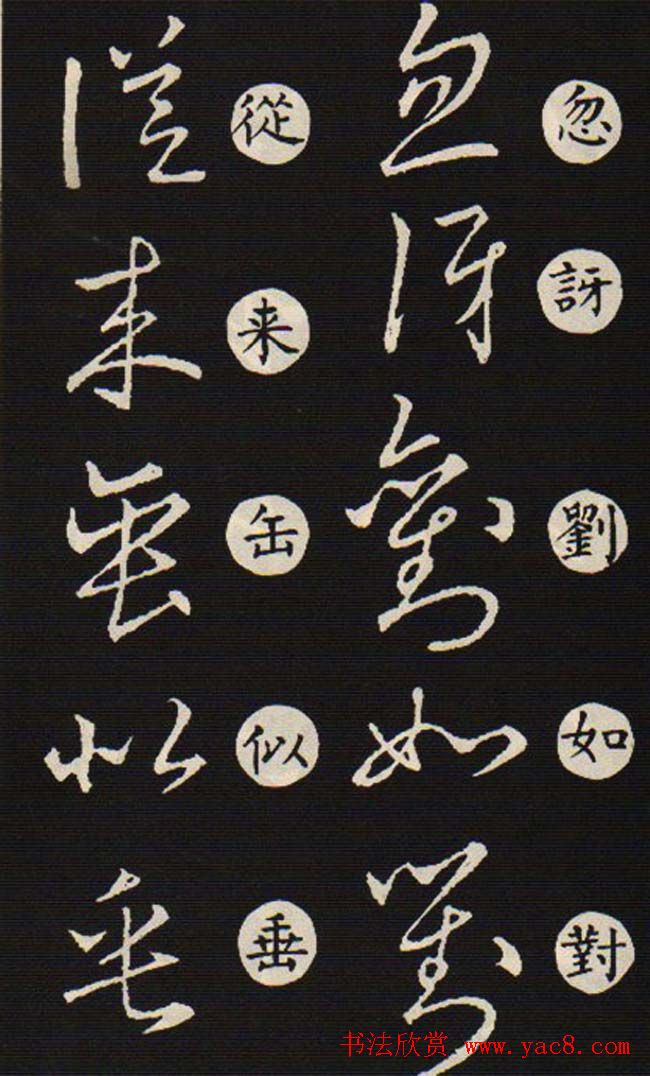 忽訝劉如對
從来缶似垂
书法欣赏 www.yac8.com